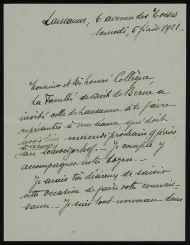 Lausanne, 6 avenue des Toises
Samedi, 5 février 1921.
Monsieur et très honoré Collègue
La Faculté de Droit de Berne a
invité celle de Lausanne à se faire
représenter à un dîner qui doit
avoir lieu mercredi prochain 9 février
au Schweizerhof. — Je compte y
accompagner notre Doyen. —
Je serais très désireux de saisir
cette occasion de faire votre connais-
sance. — Je suis tout nouveau dans